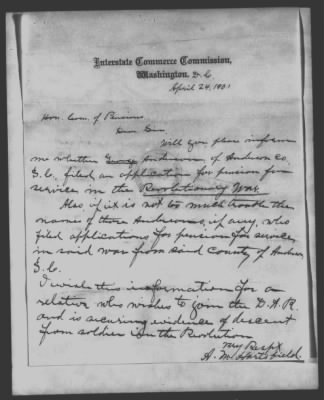 Interstate Commerce Commission,
Washington, D.C.
April 24, 1901
Hon. Com. of Pensions
Dear Sir
Will you please inform
me whether Anderson, of Anderson Co.
S.C. filed an application for pension for
service in the Revolutionary War.
Also, if it is not too much trouble the
names of those Andersons, if any, who
filed applications for pension for services
in said war from said County of Anderson
S.C.
I wish this information for a
relative who wishes to join the D.A.R.
and is securing evidence of descent
from soldier in the Revolution
Very Respt
A. M. Hartsfield.